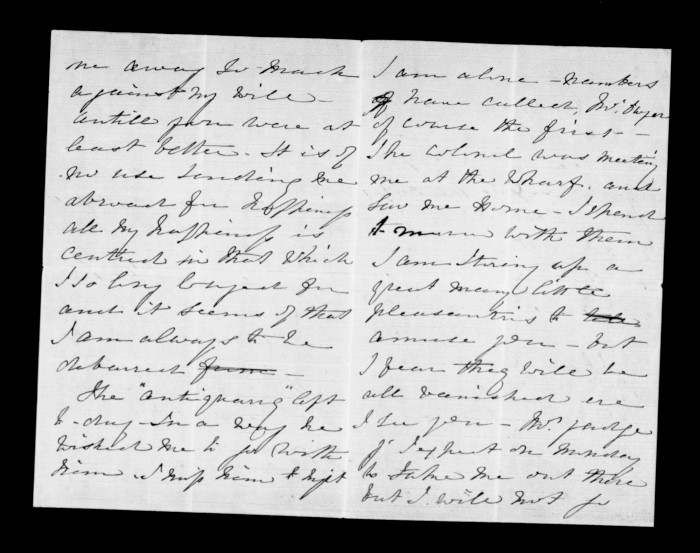 me away so much
against my will -
untill you were at
least better. It is of
no use sending me
abroad for happiness
all my happiness is
centred in that which
I so long longed for
and it seems of that
I am always to be
debarred from -
The "antiquary" left
to-day - In a way he
wished me to go with
him. I miss him to night
I am alone - numbers
of have called, Mr. Dwyer
of course the first -
The colonel was meeting
me at the Wharf. and
saw me home - I spend
with them
I am storing up a
great many little
pleasantries to tell
amuse you - but
I fear they will be
all vanished ere
I see you - Mrs. George
I expect on Monday
to take me out there
but I will not go